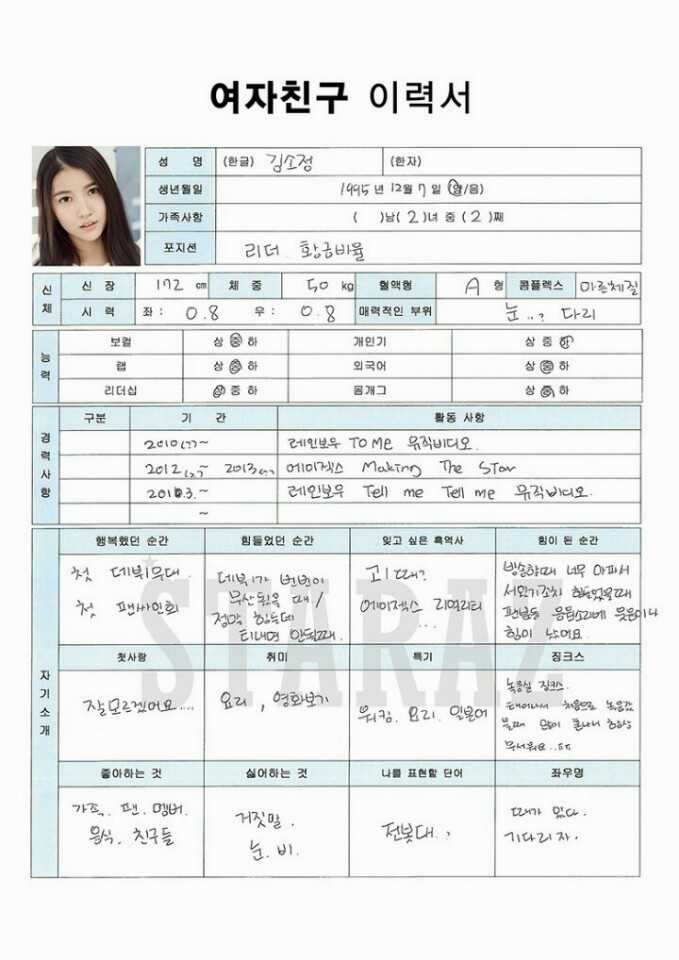 여자친구 이력서
성 명 (한글) 김소정 (한자)
생년월일 1995 년 12월 7 일 (양/음)
가족사항 ( )남( 2 )녀 중 ( 2 )째
포지션 리더. 황금비율
신체
신 장 172 cm 체 중 50 kg 혈액형 A 형 콤플렉스 마른체질
시 력 좌 : 0.8 우 : 0.8 매력적인 부위 눈..? 다리
능력
보컬 상 중 하 개인기 상 중 하
랩 상 중 하 외국어 상 중 하
리더십 상 중 하 몸개그 상 중 하
경력사항
구분 기 간 활동 사항
2010 (??) ~ 레인보우 TO ME 뮤직비디오.
2012 ~ 2013 에이젝스 Making The Star
3. ~ 레인보우 Tell me Tell me 뮤직비디오.
~
자기소개
행복했던 순간 힘들었던 순간 잊고 싶은 흑역사 힘이 된 순간
첫 데뷔무대.
첫 팬싸인회
데뷔가 번번이
무산됐을 때/
정말 힘든데
티내면 안될때.
고1때?
에이젝스 리얼리티
...
방송할때 너무 아파서
힘들었을때
팬분들 응원소리에 웃음이나
힘이 났어요.
첫사랑 취미 특기 징크스
잘모르겠어요....
요리, 영화보기
워킹. 요리. 일본어
녹음실 징크스.
태어나서 처음으로 녹음갔
을때 많이 혼나서 항상
무서워요..ㅠㅠ
좋아하는 것 싫어하는 것 나를 표현할 단어 좌우명
가족. 팬. 멤버.
음식. 친구들
거짓말.
눈. 비.
전봇대..
때가 있다.
기다리자.
STARAZ